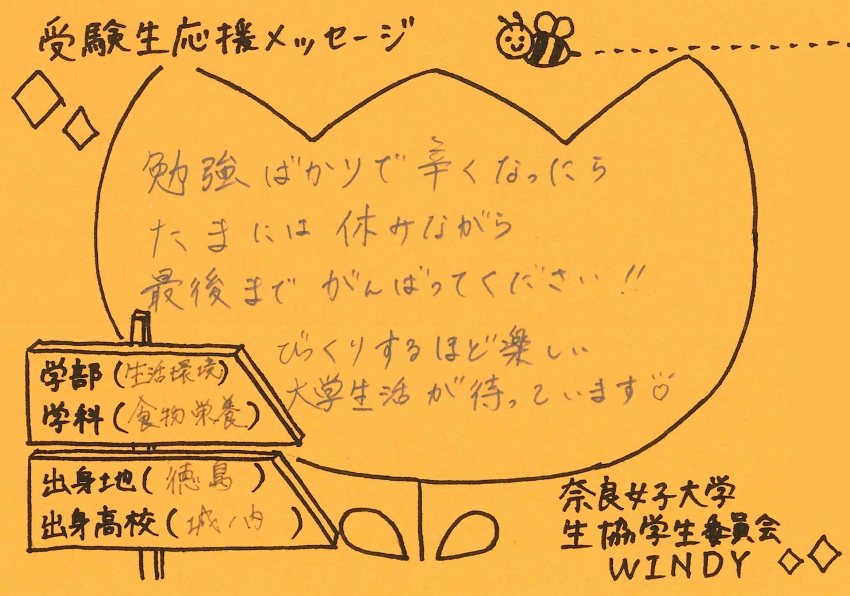 受験生応援メッセージ
勉強ばかりで辛くなったら
たまには休みながら
最後まで がんばってください!!
びっくりするほど楽しい
大学生活が待っています♡
学部(生活環境)
学科(食物栄養)
出身地(徳島)
出身高校(城ノ内)
奈良女子大学
生協学生委員会
WINDY